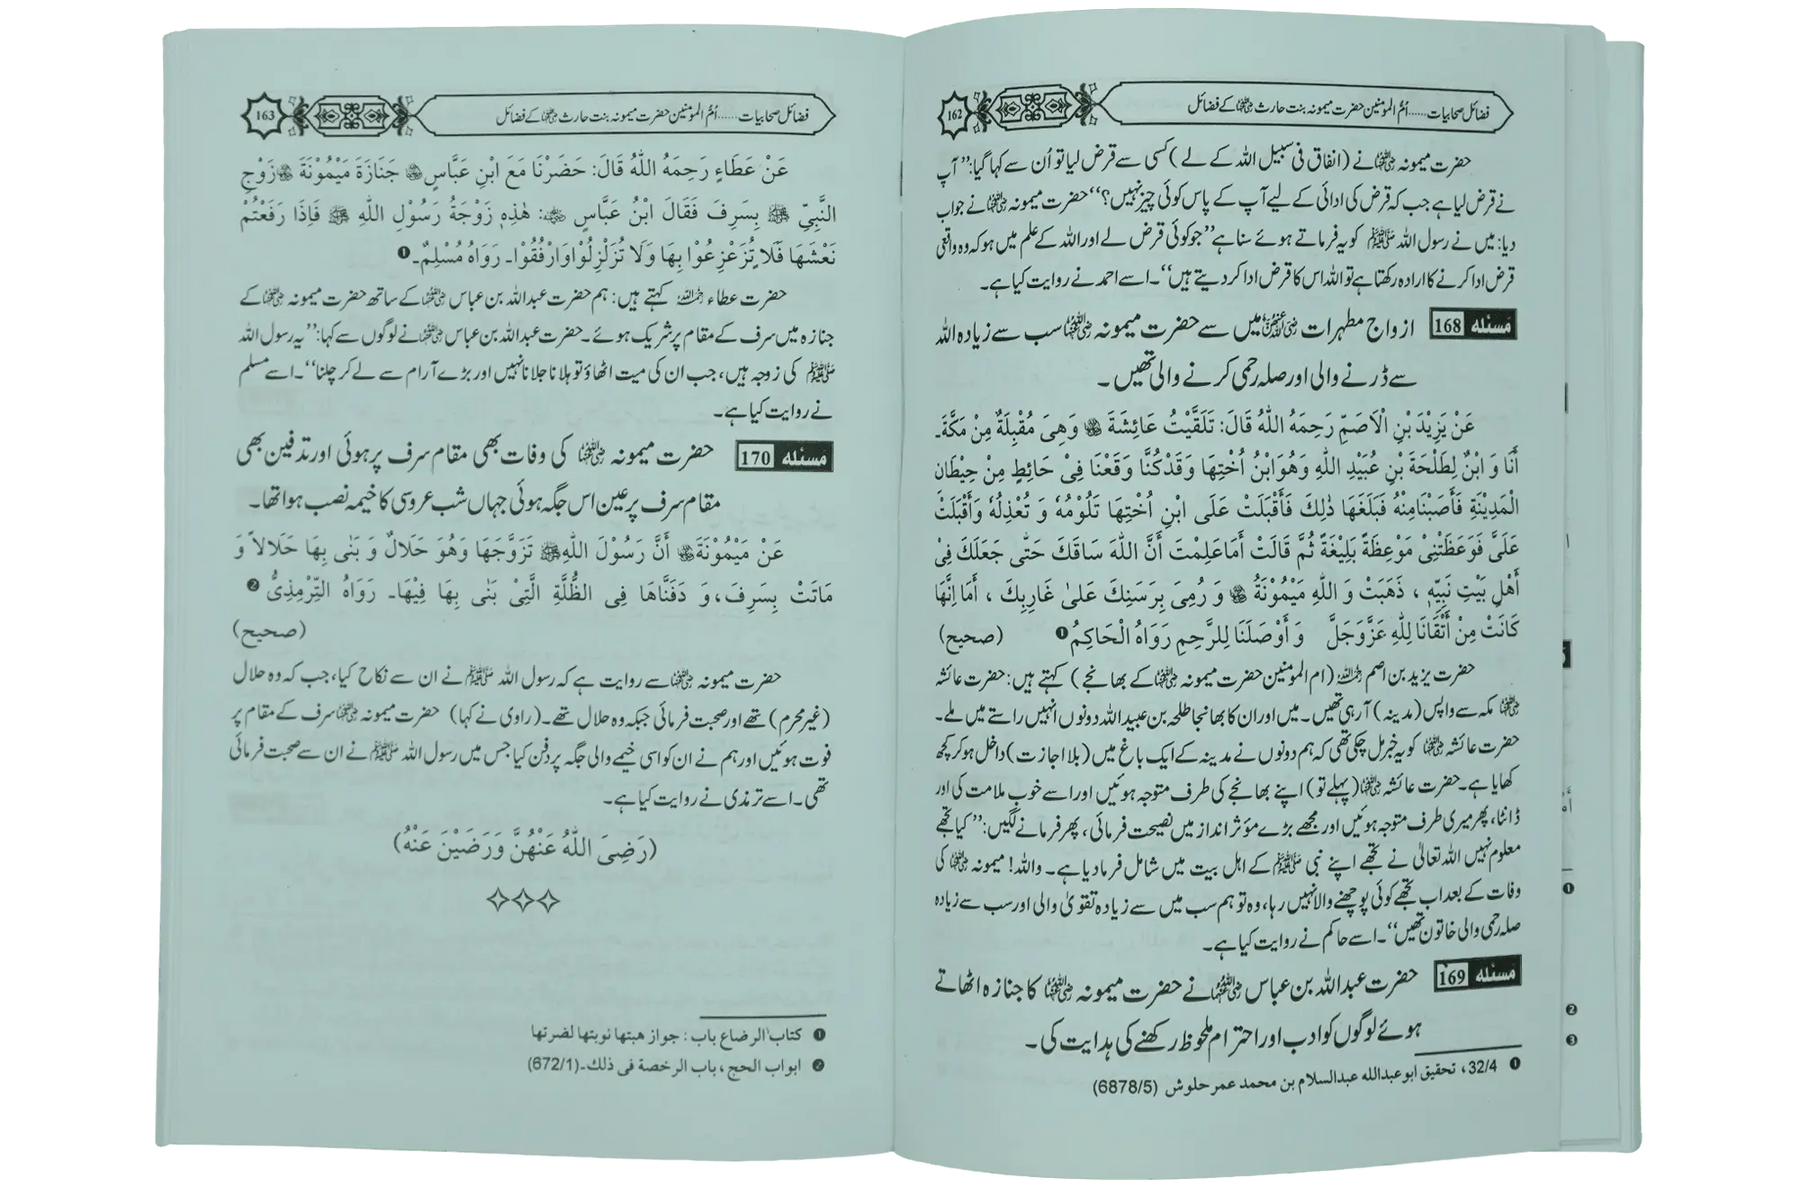 162
فضائل صحابیات......اُمّ المؤمنین حضرت میمونہ بنت حارث ؓ کے فضائل
حضرت میمونہ ؓ نے (انفاق فی سبیل اللہ کے لے) کسی سے قرض لیا تو اُن سے کہا گیا: ’’آپ
نے قرض لیا ہے جب کہ قرض کی ادائی کے لیے آپ کے پاس کوئی چیز نہیں؟‘‘ حضرت میمونہ ؓ نے جواب
دیا: میں نے رسول اللہ ﷺ کو یہ فرماتے ہوئے سنا ہے ’’جو کوئی قرض لے اور اللہ کے علم میں ہو کہ وہ واقعی
قرض ادا کرنے کا ارادہ رکھتا ہے تو اللہ اس کا قرض ادا کر دیتے ہیں‘‘۔ اسے احمد نے روایت کیا ہے۔
مَسئله 168 ازواج مطہرات ؓ میں سے حضرت میمونہ ؓ سب سے زیادہ اللہ
سے ڈرنے والی اور صلہ رحمی کرنے والی تھیں۔
عَنْ يَزِيْدَ بْنِ الْاَصَمِّ رَحِمَهُ اللّٰهُ قَالَ: تَلَقَّيْتُ عَائِشَةَ ؓ وَهِىَ مُقْبِلَةٌ مِنْ مَكَّةَ۔
أَنَا وَ ابْنٌ لِطَلْحَةَ بْنِ عُبَيْدِ اللّٰهِ وَهُوَابْنُ اُخْتِهَا وَقَدْكُنَّا وَقَعْنَا فِىْ حَائِطٍ مِنْ حِيْطَانِ
الْمَدِيْنَةِ فَأَصَبْنَامِنْهُ فَبَلَغَهَا ذٰلِكَ فَأَقْبَلَتْ عَلَى ابْنِ اُخْتِهَا تَلُوْمُهُ وَ تُعْذِلُهُ وَأَقْبَلَتْ
عَلَىَّ فَوَعَظَتْنِىْ مَوْعِظَةً بَلِيْغَةً ثُمَّ قَالَتْ أَمَاعَلِمْتَ أَنَّ اللّٰهَ سَاقَكَ حَتّٰى جَعَلَكَ فِىْ
أَهْلِ بَيْتِ نَبِيِّهِ ، ذَهَبَتْ وَ اللّٰهِ مَيْمُوْنَةُ ؓ وَ رُمِىَ بِرَسَنِكَ عَلىٰ غَارِبِكَ ، أَمَا اِنَّهَا
كَانَتْ مِنْ أَتْقَانَا لِلّٰهِ عَزَّوَجَلَّ وَ أَوْصَلَنَا لِلرَّحِمِ رَوَاهُ الْحَاكِمُ ❶ (صحیح)
حضرت یزید بن اصم ؒ (ام المؤمنین حضرت میمونہ ؓ کے بھانجے) کہتے ہیں: حضرت عائشہ
ؓ مکہ سے واپس (مدینہ) آرہی تھیں۔ میں اور ان کا بھانجا طلحہ بن عبید اللہ دونوں انہیں راستے میں ملے۔
حضرت عائشہ ؓ کو یہ خبر مل چکی تھی کہ ہم دونوں نے مدینہ کے ایک باغ میں (بلا اجازت) داخل ہو کر کچھ
کھایا ہے۔ حضرت عائشہ ؓ (پہلے تو) اپنے بھانجے کی طرف متوجہ ہوئیں اور اسے خوب ملامت کی اور
ڈانٹا، پھر میری طرف متوجہ ہوئیں اور مجھے بڑے مؤثر انداز میں نصیحت فرمائی، پھر فرمانے لگیں: ’’کیا تجھے
معلوم نہیں اللہ تعالیٰ نے تجھے اپنے نبی ﷺ کے اہل بیت میں شامل فرما دیا ہے۔ واللہ! میمونہ ؓ کی
وفات کے بعد اب تجھے کوئی پوچھنے والا نہیں رہا، وہ تو ہم سب میں سے زیادہ تقویٰ والی اور سب سے زیادہ
صلہ رحمی والی خاتون تھیں‘‘۔ اسے حاکم نے روایت کیا ہے۔
مَسئله 169 حضرت عبداللہ بن عباس ؓ نے حضرت میمونہ ؓ کا جنازہ اٹھاتے
ہوئے لوگوں کو ادب اور احترام ملحوظ رکھنے کی ہدایت کی۔
❶ 32/4، تحقیق ابو عبدالله عبدالسلام بن محمد عمر حلوش (6878/5)
163
فضائل صحابیات......اُمّ المؤمنین حضرت میمونہ بنت حارث ؓ کے فضائل
عَنْ عَطَاءٍ رَحِمَهُ اللّٰهُ قَالَ: حَضَرْنَا مَعَ ابْنِ عَبَّاسٍ ؓ جَنَازَةَ مَيْمُوْنَةَ ؓ زَوْجِ
النَّبِيِّ ﷺ بِسَرِفَ فَقَالَ ابْنُ عَبَّاسٍ ؓ: هٰذِهِ زَوْجَةُ رَسُوْلِ اللّٰهِ ﷺ فَاِذَا رَفَعْتُمْ
نَعْشَهَا فَلَا تُزَعْزِعُوْا بِهَا وَلَا تُزَلْزِلُوْا وَارْفُقُوْا۔ رَوَاهُ مُسْلِمٌ۔❶
حضرت عطاء ؒ کہتے ہیں: ہم حضرت عبداللہ بن عباس ؓ کے ساتھ حضرت میمونہ ؓ کے
جنازہ میں سرف کے مقام پر شریک ہوئے۔ حضرت عبداللہ بن عباس ؓ نے لوگوں سے کہا: ’’یہ رسول اللہ
ﷺ کی زوجہ ہیں، جب ان کی میت اٹھاؤ تو ہلانا جلانا نہیں اور بڑے آرام سے لے کر چلنا‘‘۔ اسے مسلم
نے روایت کیا ہے۔
مَسئله 170 حضرت میمونہ ؓ کی وفات بھی مقام سرف پر ہوئی اور تدفین بھی
مقام سرف پر عین اس جگہ ہوئی جہاں شب عروسی کا خیمہ نصب ہوا تھا۔
عَنْ مَيْمُوْنَةَ ؓ أَنَّ رَسُوْلَ اللّٰهِ ﷺ تَزَوَّجَهَا وَهُوَ حَلَالٌ وَ بَنٰى بِهَا حَلَالاً وَ
مَاتَتْ بِسَرِفَ، وَ دَفَنَّاهَا فِى الظُّلَّةِ الَّتِىْ بَنٰى بِهَا فِيْهَا۔ رَوَاهُ التِّرْمِذِىُّ ❷
(صحیح)
حضرت میمونہ ؓ سے روایت ہے کہ رسول اللہ ﷺ نے ان سے نکاح کیا، جب کہ وہ حلال
(غیر محرم) تھے اور صحبت فرمائی جبکہ وہ حلال تھے۔ (راوی نے کہا) حضرت میمونہ ؓ سرف کے مقام پر
فوت ہوئیں اور ہم نے ان کو اسی خیمے والی جگہ پر دفن کیا جس میں رسول اللہ ﷺ نے ان سے صحبت فرمائی
تھی۔ اسے ترمذی نے روایت کیا ہے۔
(رَضِىَ اللّٰهُ عَنْهُنَّ وَرَضَيْنَ عَنْهُ)
❶ كتاب الرضاع باب : جواز هبتها نوبتها لضرتها
❷ ابواب الحج ، باب الرخصة فى ذلك۔(672/1)